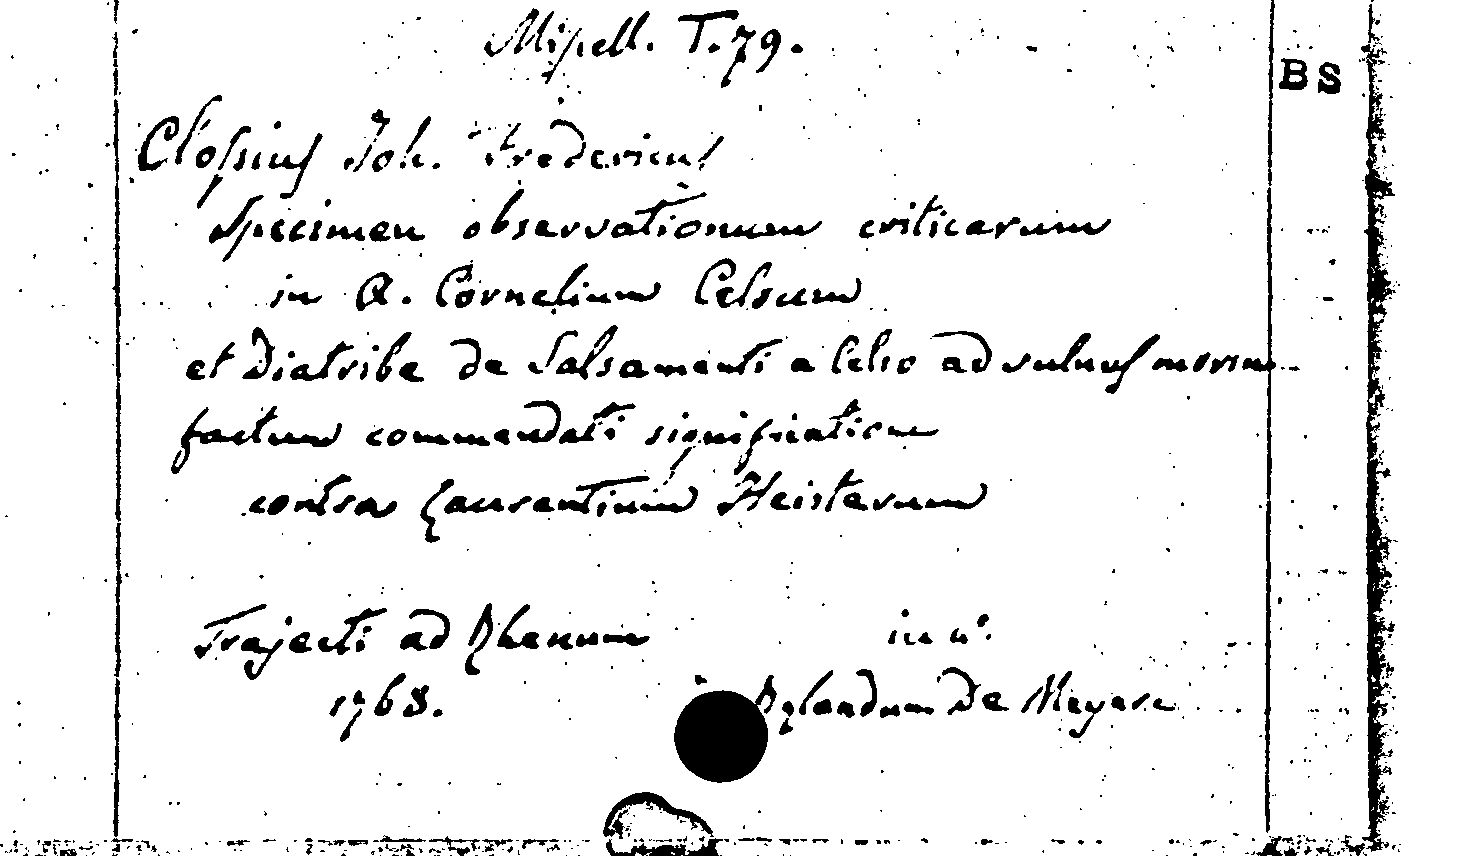 Miscell. T. 79.
BS
Clossius Joh. Fredericus
Specimen observationum criticarum
in A. Cornelium Celsum
et Diatribe de Salsamenti a Celso ad vulnus morsu
factum commendati significatione
contra Laurentium Heisterum
Trajecti ad Rhenum in 4°.
1768. de Meyere